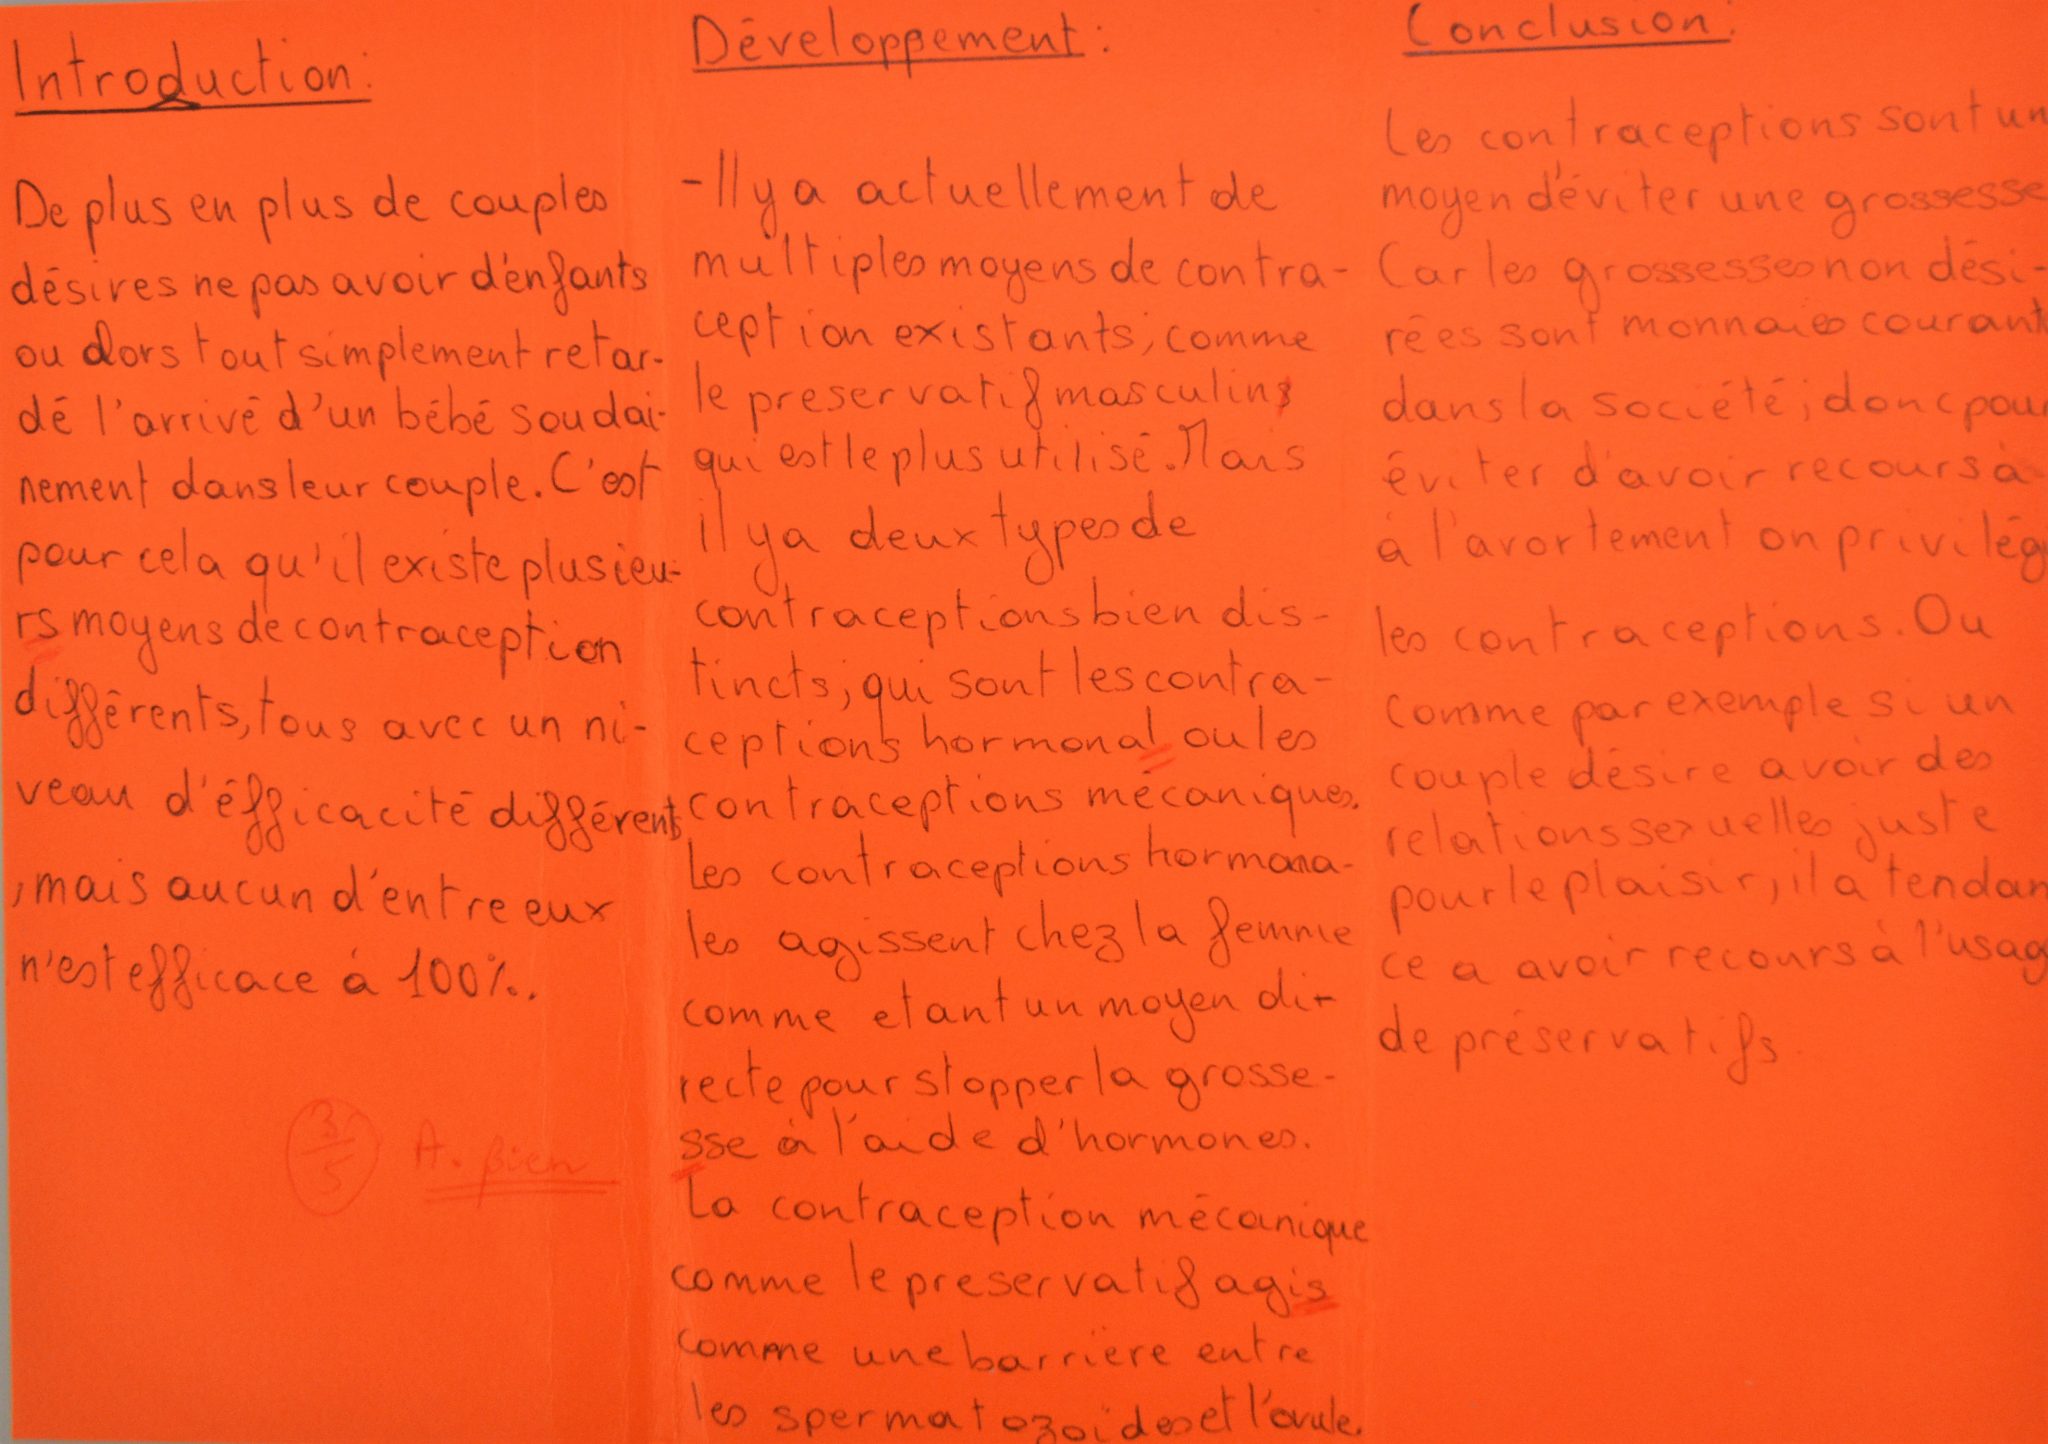 Introduction:
De plus en plus de couples
désires ne pas avoir d'énfants
ou alors tout simplement retar-
dé l'arrivé d'un bébé soudai-
nement dans leur couple. C'est
pour cela qu'il existe plusieu-
rs moyens de contraception
différents, tous avec un ni-
veau d'éfficacité différents
, mais aucun d'entre eux
n'est efficace à 100%.
3/5 A. Bien
Développement:
- Il y a actuellement de
multiples moyens de contra-
ception existants; comme
le preservatif masculins
qui est le plus utilisé. Mais
il y a deux types de
contraceptions bien dis-
tincts; qui sont les contra-
ceptions hormonal ou les
contraceptions mécaniques.
Les contraceptions hormona-
les agissent chez la femme
comme etant un moyen di-
recte pour stopper la grosse-
sse à l'aide d'hormones.
La contraception mécanique
comme le preservatif agis
comme une barrière entre
les spermatozoïdes et l'ovule.
Conclusion:
Les contraceptions sont un
moyen d'éviter une grossesse
Car les grossesses non dési-
rées sont monnaies courant
dans la société; donc pour
éviter d'avoir recours à
à l'avortement on privilég
les contraceptions. Ou
comme par exemple si un
couple désire avoir des
relations sexuelles juste
pour le plaisir, il a tendan
ce a avoir recours à l'usag
de préservatifs.